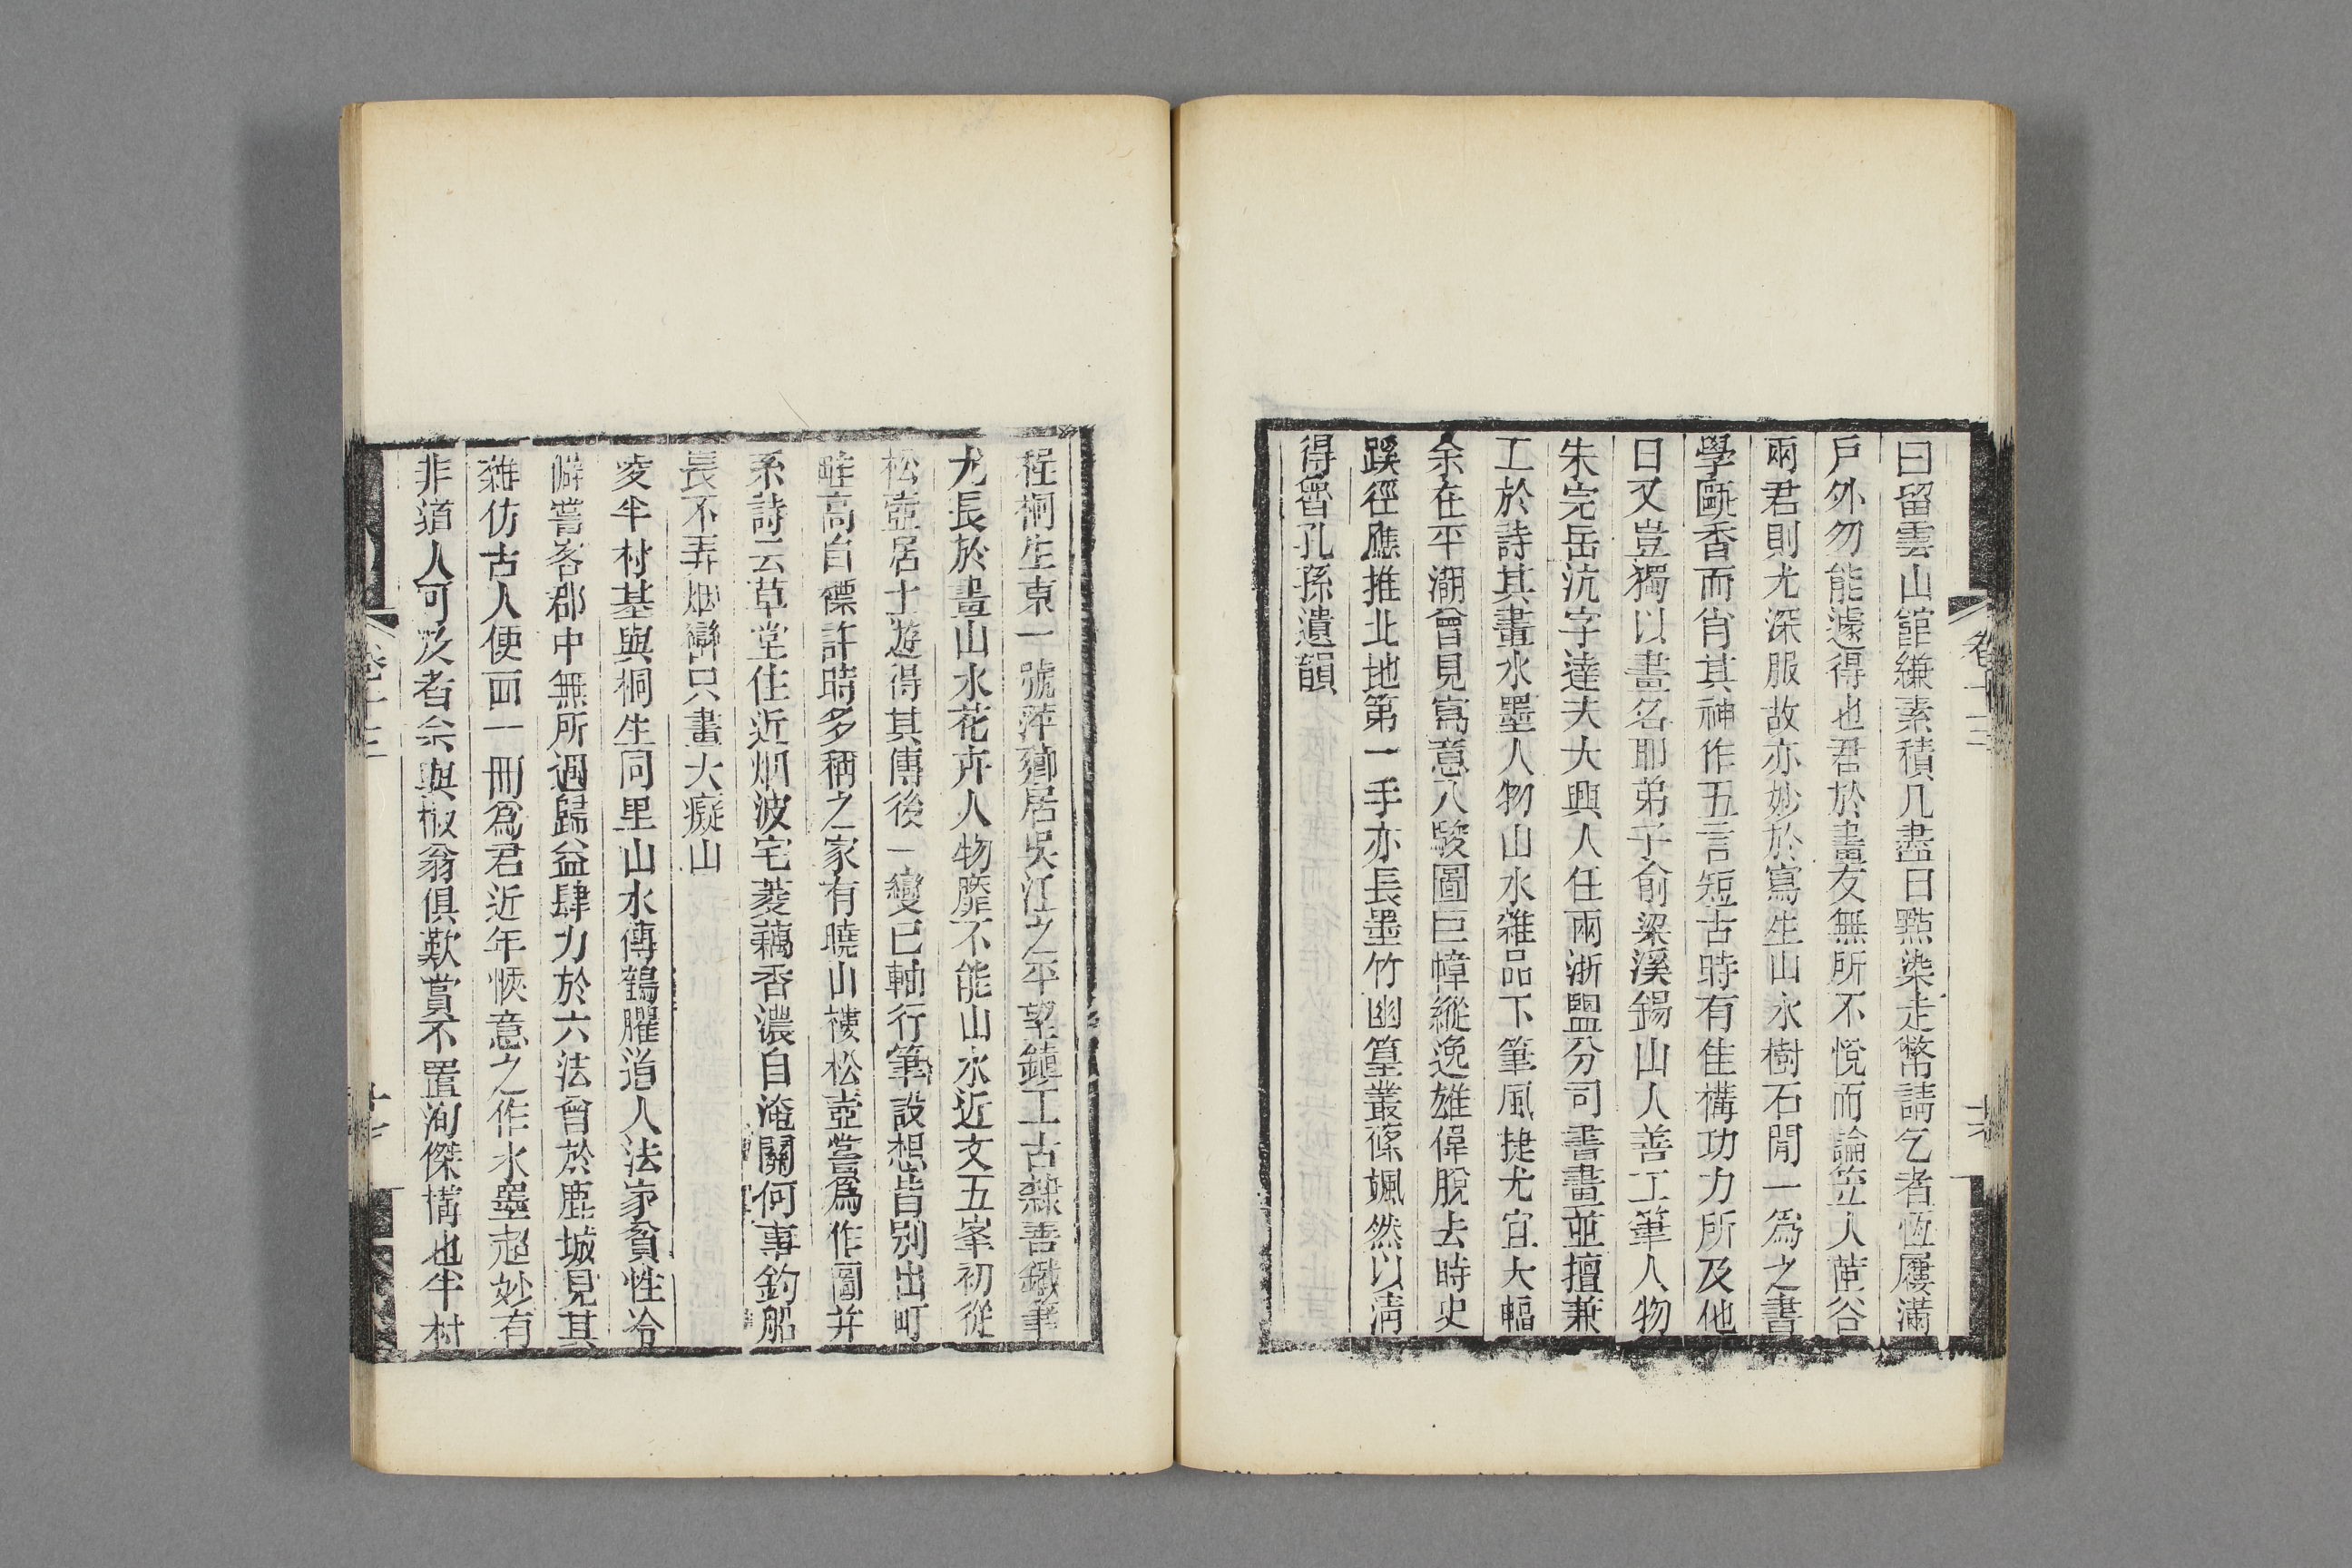 曰留雲山館縑素積几盡日點染走幣請乞者恆屨滿
戶外勿能遽得也君於畫友無所不悅而論笠人茝谷
兩君則尤深服故亦妙於寫生山水樹石閒一為之書
學甌香而肖其神作五言短古時有佳構功力所及他
日又豈獨以畫名耶弟子俞梁溪錫山人善工筆人物
朱完岳沆字達夫大興人任兩浙盬分司書畫並擅兼
工於詩其畫水墨人物山水雜品下筆風捷尤宜大幅
余在平潮曾見寫意八駿圖巨幛縱逸雄偉脫去時史
蹊徑應推北地第一手亦長墨竹幽篁叢篠颯然以清
得魯孔孫遺韻
卷十三
程桐生東一號萍鄉居吳江之平望鎮工古隸善鐵筆
尤長於畫山水花卉人物靡不能山水近文五峯初從
松壺居士遊得其傳後一變已軸行筆設想皆別出町
畦高自標許時多稱之家有曉山樓松壺嘗為作圖并
系詩云草堂住近烟波宅菱藕香濃自淹關何事釣船
長不弄烟巒只畫大癡山
凌半村基與桐生同里山水傳鶴臞道人法家貧性冷
僻嘗客郡中無所遇歸益肆力於六法曾於鹿城見其
雜仿古人便面一冊為君近年愜意之作水墨超妙有
非道人可及者余與椒翁俱歎賞不置洵傑構也半村
卷十三